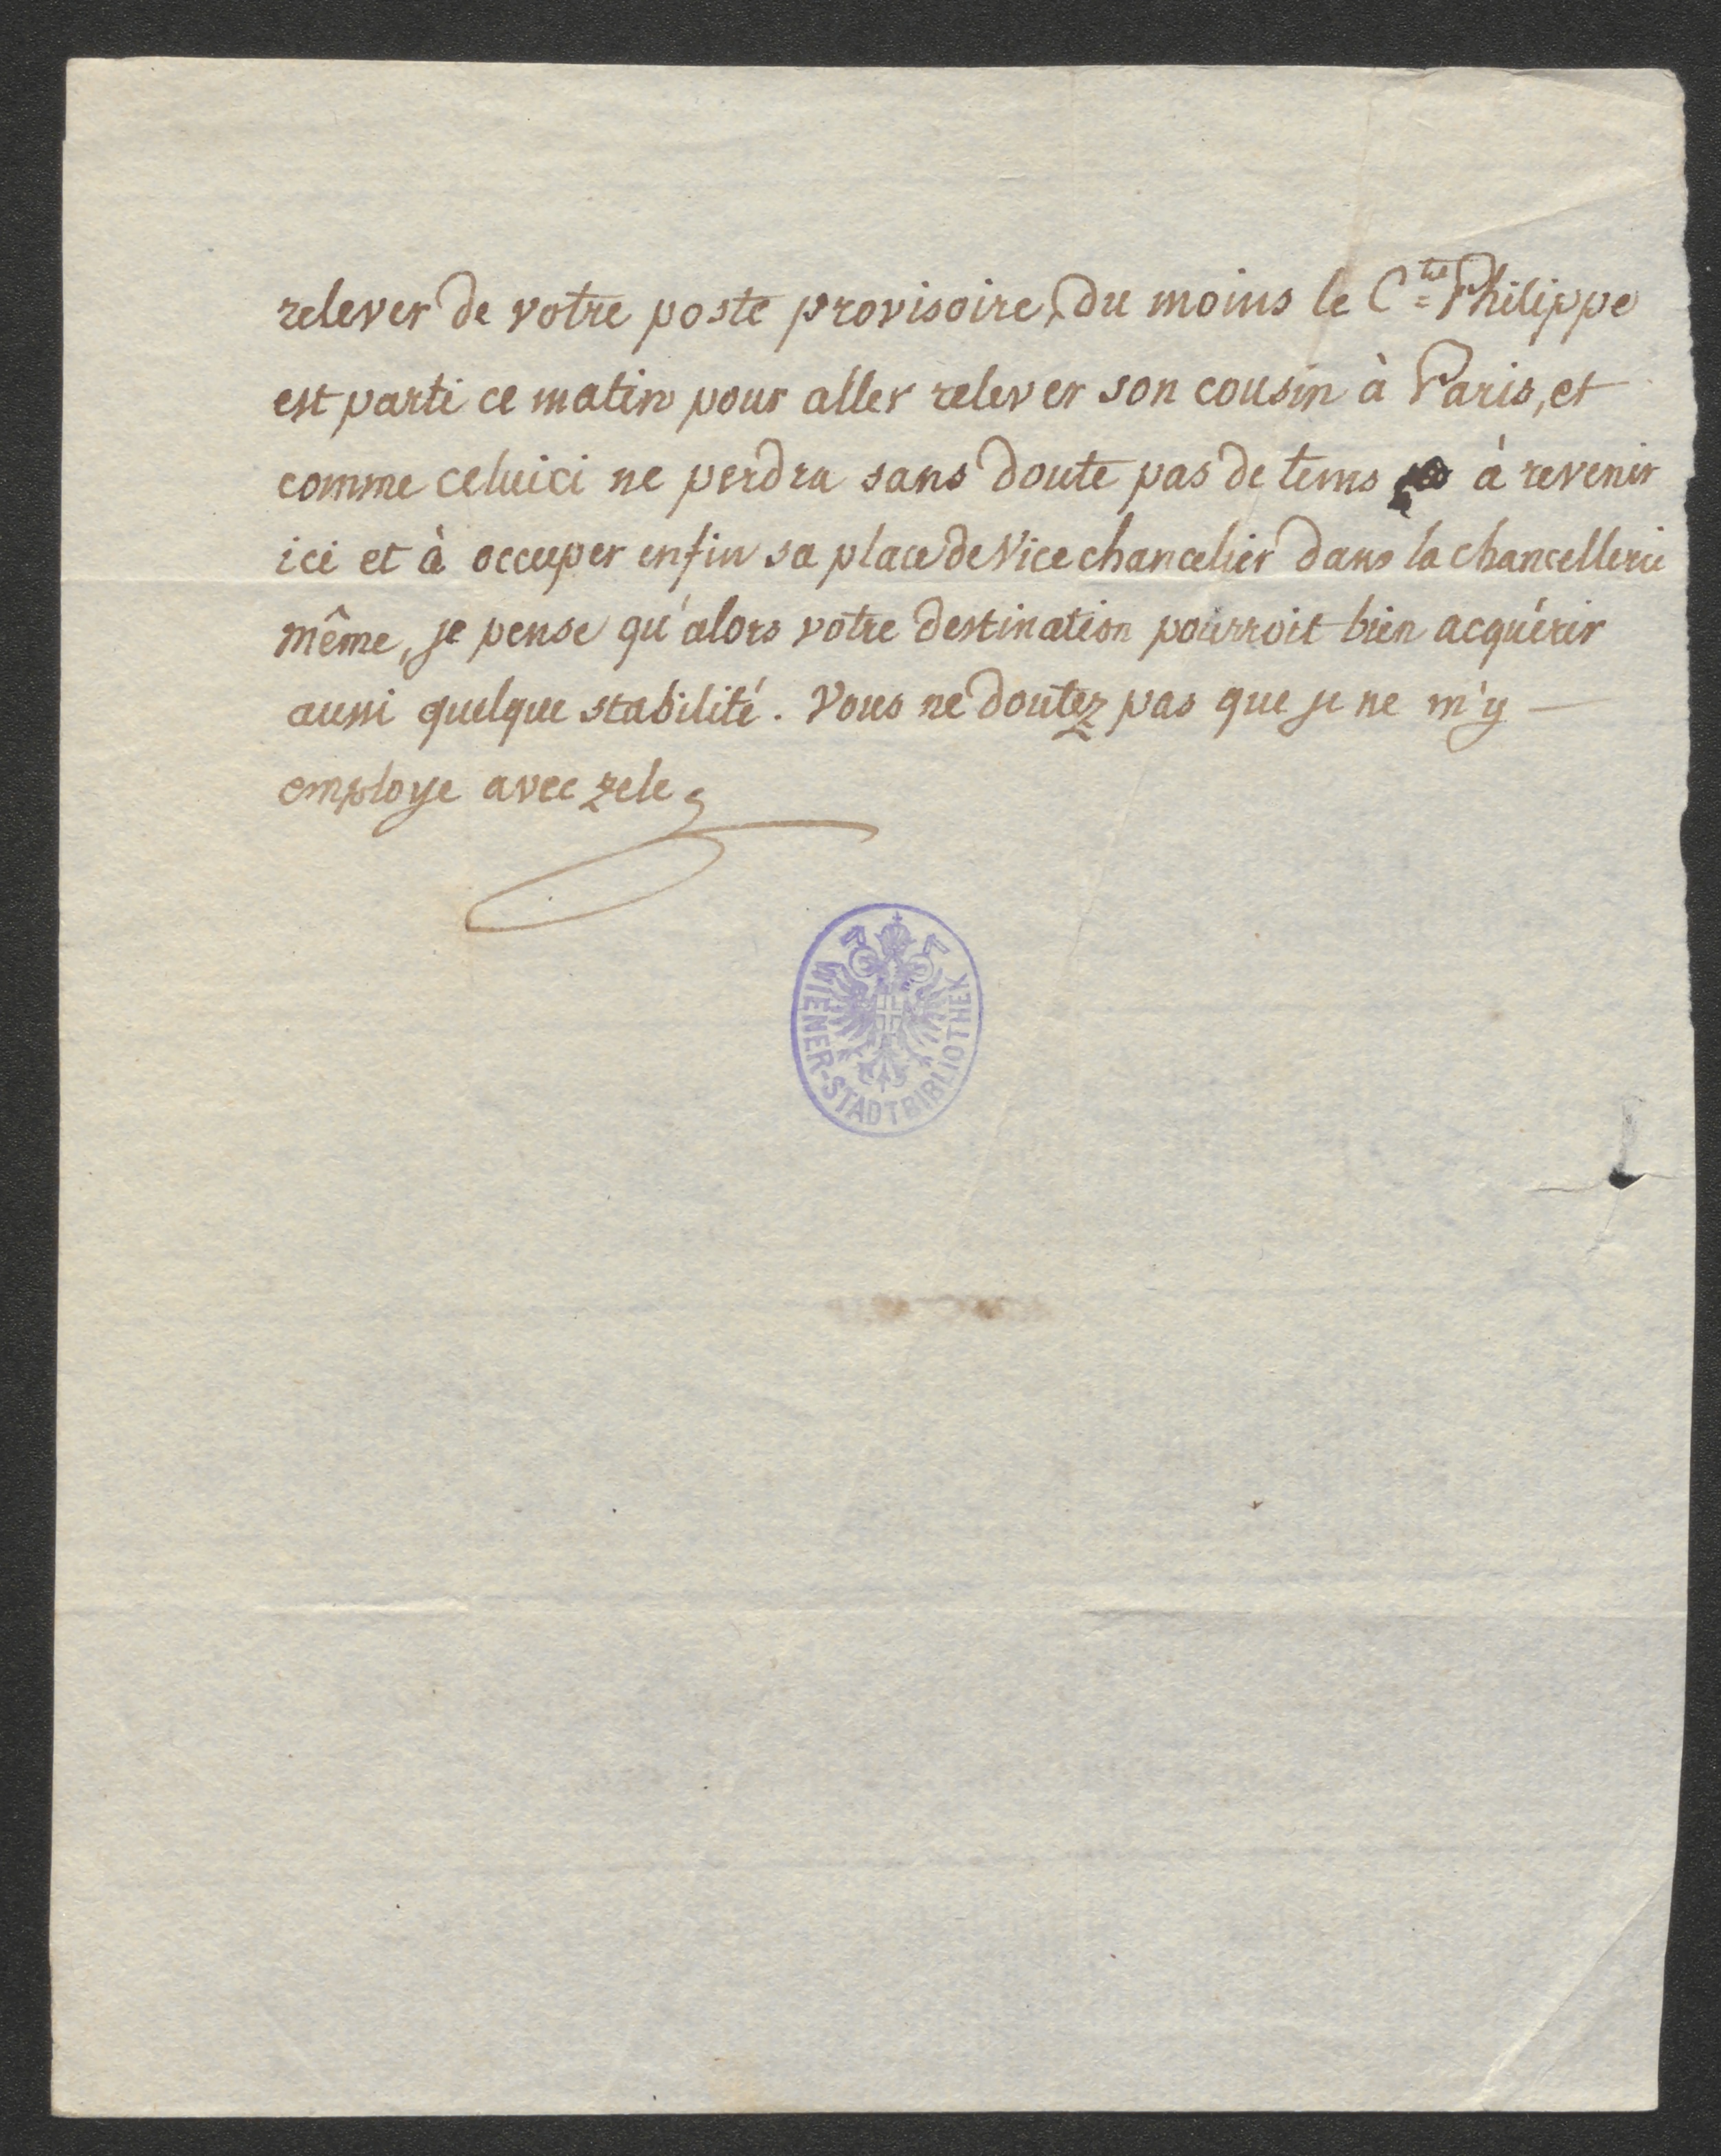 relever de votre poste provisoire, du moins le C.te Philippe
est parti ce matin pour aller relever son cousin à Paris, et
comme celuici ne perdra sans doute pas de tems à revenir
ici et à occuper enfin sa place de Vice chancelier dans la chancellerie
même, je pense qu'alors votre destination pourroit bien acquérir
aussi quelque stabilité. Vous ne doutez pas que je ne m'y —
employe avec zele
WIENER-STADTBIBLIOTHEK